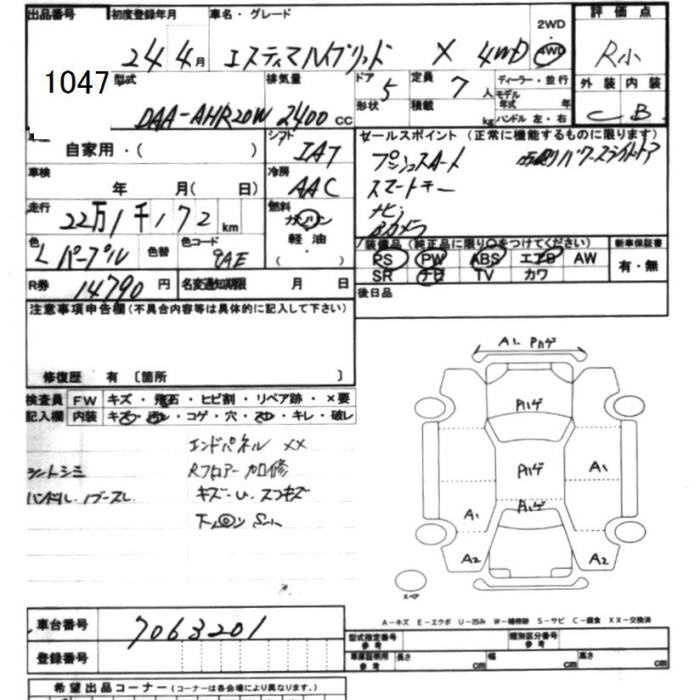 出品番号 初度登録年月 車名・グレード 2WD 評価点
1047 24年4月 エスティマハイブリッド X 4WD 4WD R小
型式 排気量 ドア 5 定員 7人 ディーラー・並行 外装 内装
DAA-AHR20W 2400cc 形状 積載 kg モデル年式 年 ハンドル 左・右 C B
自家用・( ) シフト IAT セールスポイント (正常に機能するものに限ります)
車検 年 月( 日) 冷房 AAC プッシュスタート 両側パワースライドドア
走行 22万1千172km 燃料 ガソリン スマートキー
軽油・ ナビ
( ) Bカメラ
色 Lパープル 色替 色コード 9AE 装備品 (純正品に限り○をつけてください) 新車保証書
PS PW ABS エアB AW 有・無
SR ナビ TV カワ
R券 14790円 名変通知期限 月 日 後日品
注意事項申告欄(不具合内容等は具体的に記入して下さい)
修復歴 有 〔箇所 〕
検査員 FW キズ・飛石・ヒビ割・リペア跡・×要
記入欄 内装 キズ・汚レ・コゲ・穴・スレ・キレ・破レ
エンドパネル XX
シートシミ Rフロアー 加修
キズ・U. スリキズ
A1 Pハゲ
Pハゲ
Pハゲ A1
Pハゲ
A1
A2 A2
スペア
A-キズ E-エクボ U-凹み W-補修跡 S-サビ C-腐食 XX-交換済
車台番号 7063201
型式指定番号 参考 類別区分番号 参考
登録番号 車庫証明用 参考 長さ cm 幅 cm 高さ cm
希望出品コーナー(コーナーは各会場により異なります。)